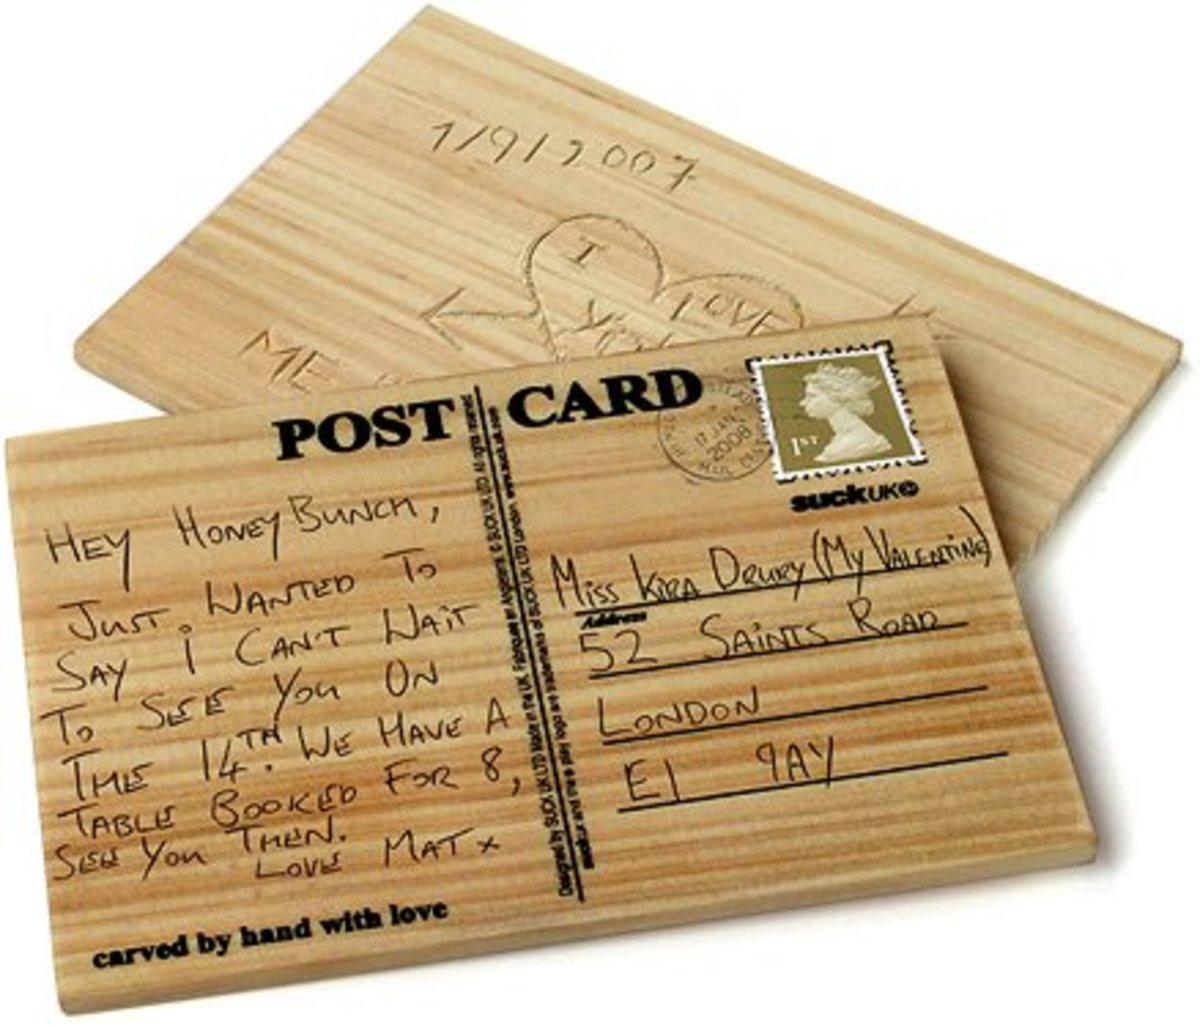 1/9/2007
I
LOVE
YOU
ME
POST CARD
17 JAN
2008
MAIL
1ST
SUCKUK
HEY HONEY BUNCH,
JUST. WANTED TO
SAY I CAN'T WAIT
TO SEE YOU ON
THE 14TH. WE HAVE A
TABLE BOOKED FOR 8,
SEE YOU THEN.
LOVE MAT x
carved by hand with love
Designed by SUCK UK LTD Made in the UK. Fabriques en Angleterre. © SUCK UK LTD. All rights reserved
suckuk and me a play logo are trademarks of SUCK UK LTD London. www.suck.uk.com
MISS KIRA DRURY (MY VALENTINE)
Address
52 SAINTS ROAD
LONDON
E1 9AY